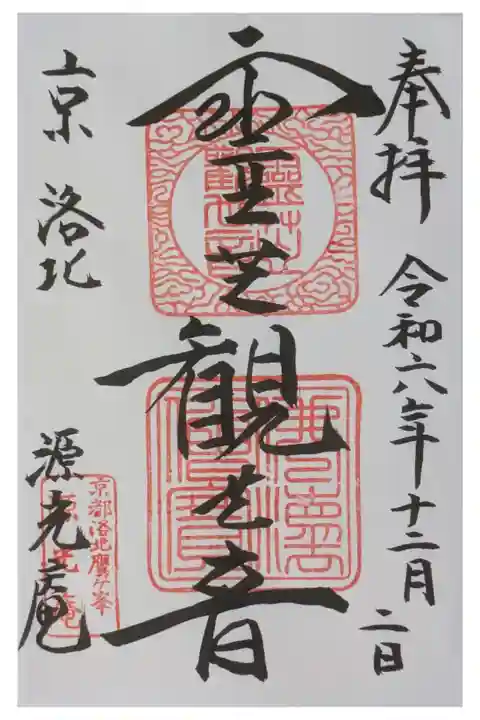 奉拝
令和六年十二月
二日
霊芝観世音
京 洛北
源光庵
京都洛北鷹ヶ峯
源光庵